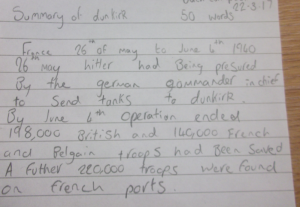 22.3.17
Summary of dunkirk 50 words
France 26th of may to June 4th 1940
26th may hitler had Being presured
By the german commander in chief
to send tanks to dunkirk.
By June 4th operation ended
198,000 British and 140,000 French
and Belgain troops had Been saved
A futher 220,000 troops were found
on french ports.